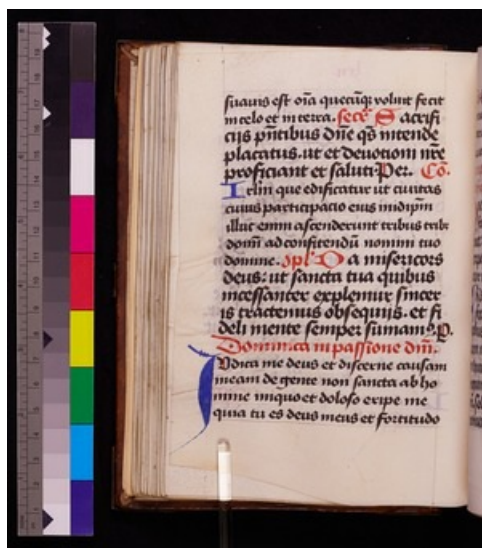 suauis est oīa quecūq; voluit fecit
in celo et in terra. Secrẽ Sacrifi
cijs pñtibus dñe qs intende
placatus. ut et deuotioni nr̃e
proficiant et saluti. Per. Cõ.
Irlm que edificatur ut ciuitas
cuius participacio eius in idip̃m
illuc enim ascenderunt tribus trib;
domĩ ad confitendũ nomini tuo
domine. Cpl. Da misericors
deus: ut sancta tua quibus
incessanter explemur sincer
is tractemus obsequijs. et fi
deli mente semper sumamꝰ. P.
Dominica in passione dñi.
Iudica me deus et discerne causam
meam de gente non sancta ab ho
mine iniquo et doloso eripe me
quia tu es deus meus et fortitudo